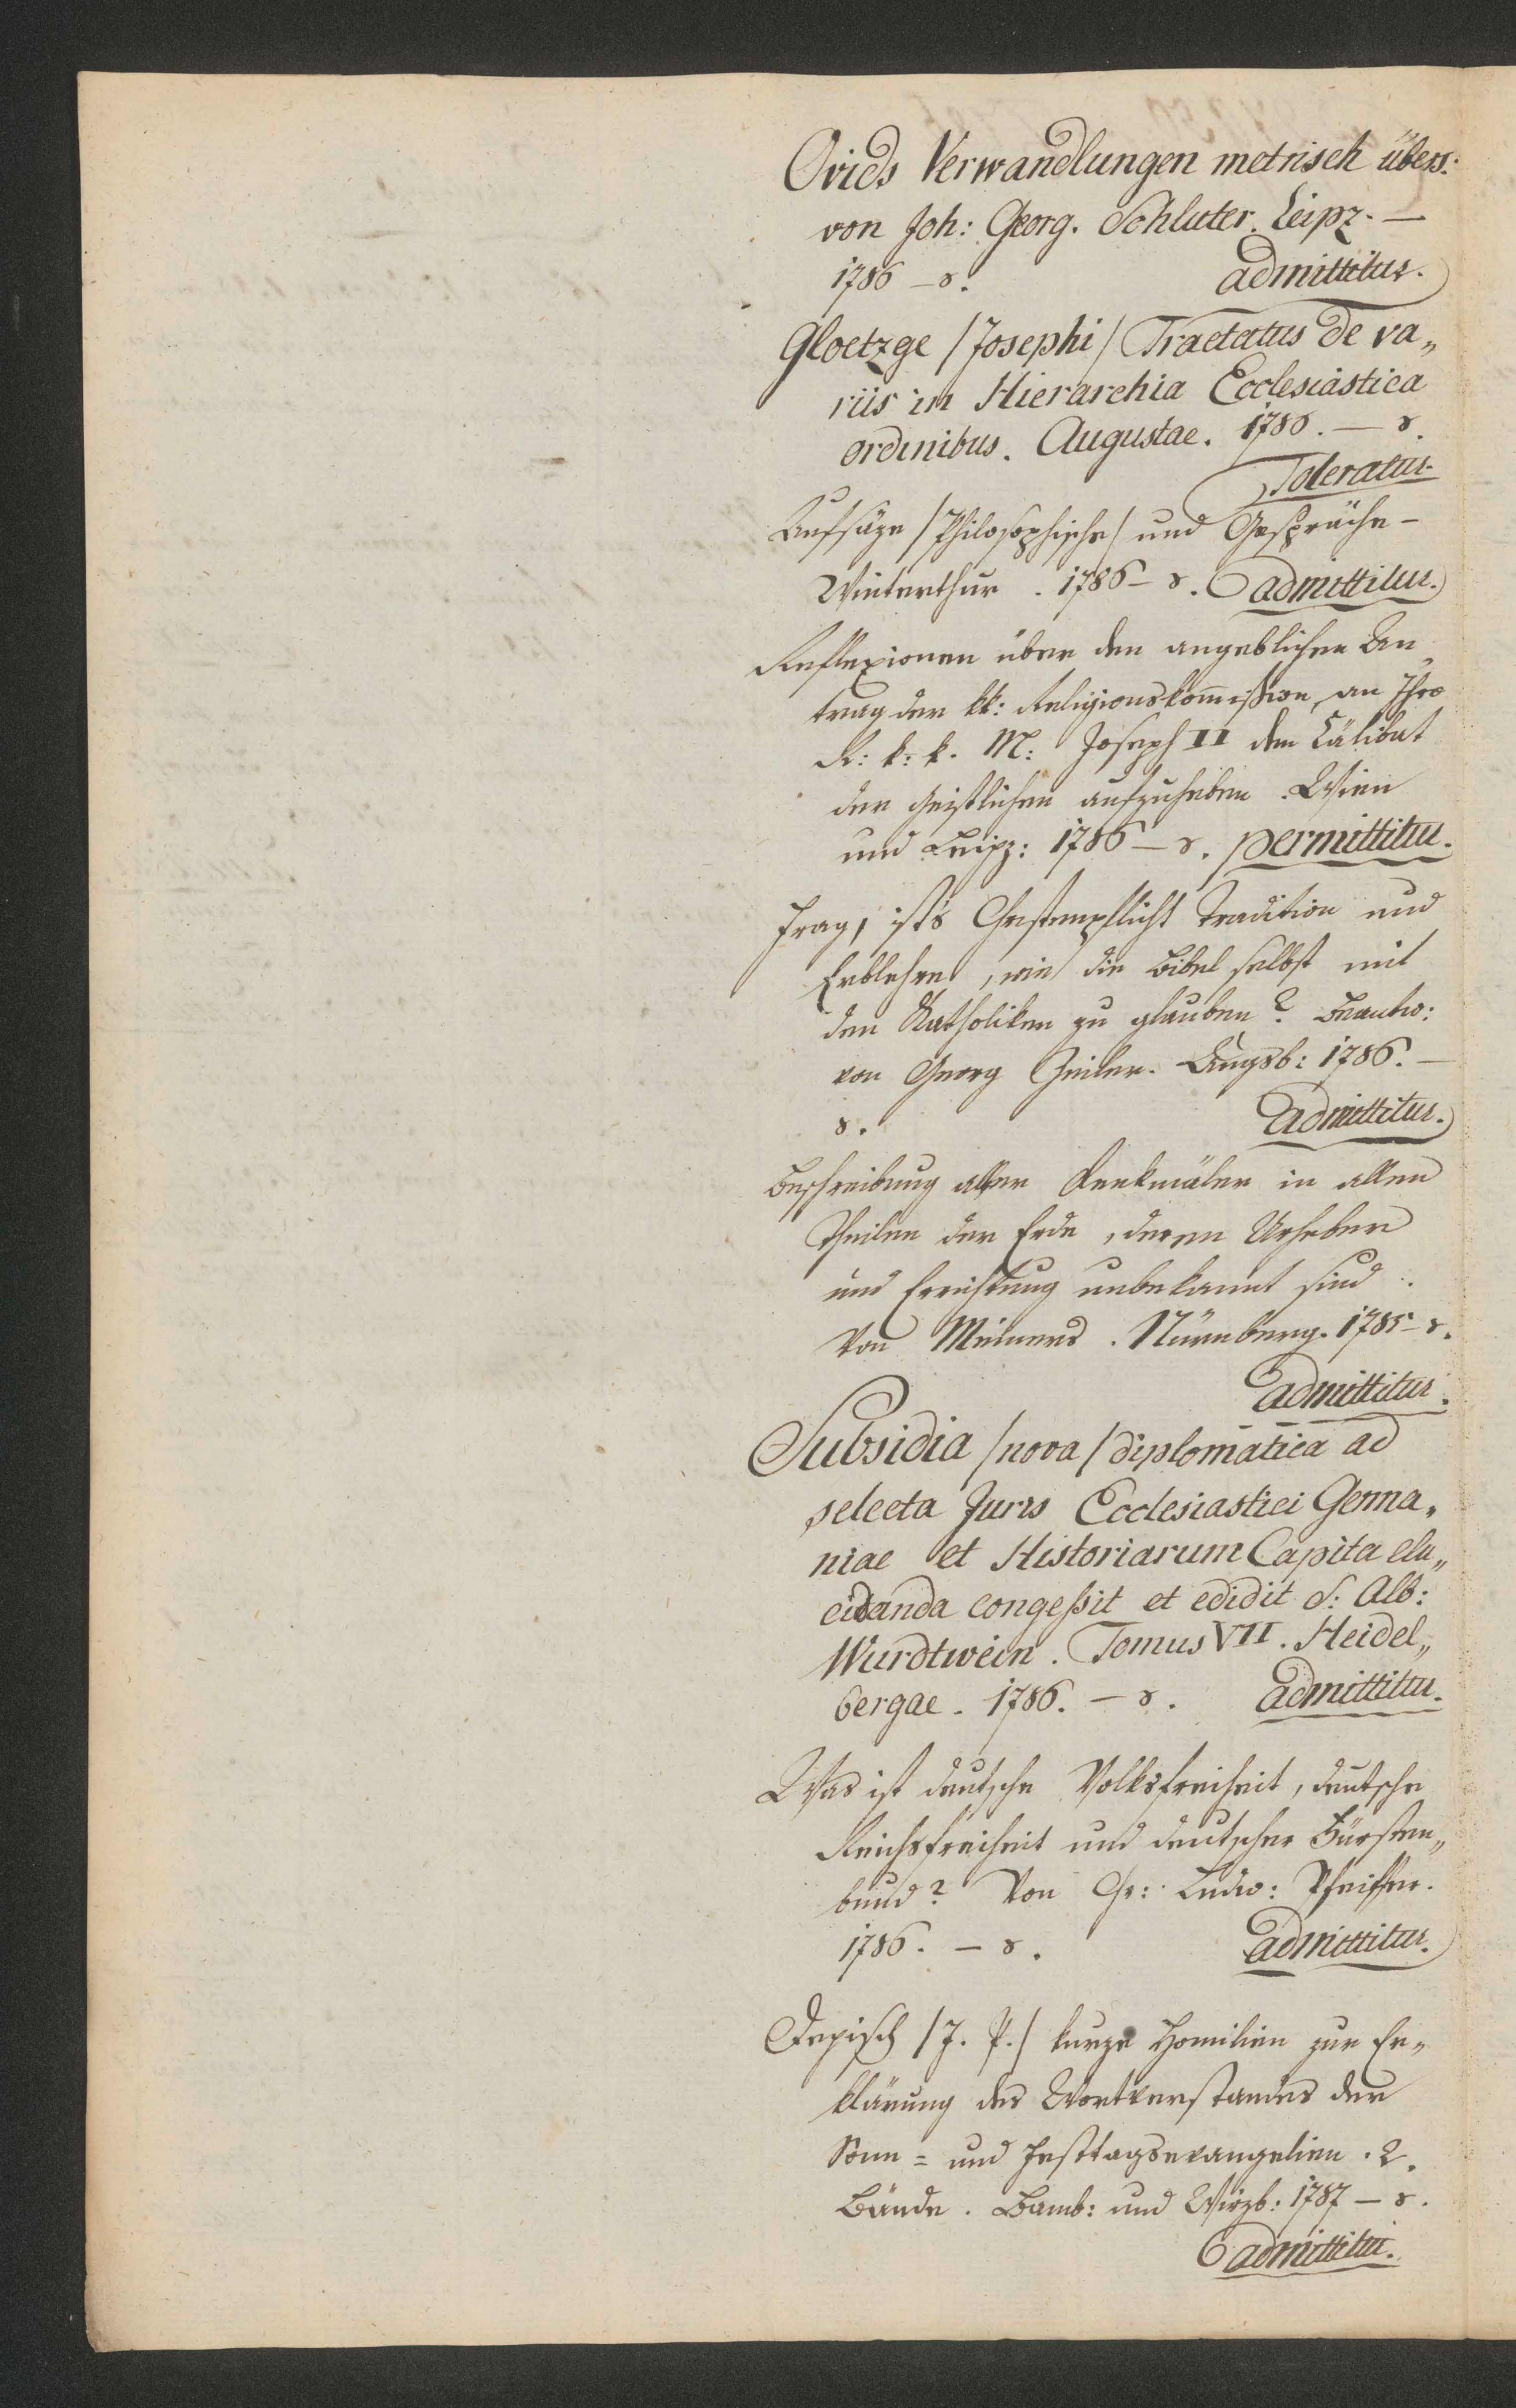 Ovids Verwandlungen metrisch übers:
von Joh: Georg. Schluter. Leipz. —
1786 — 8. admittitur.
Gloetzge /Josephi/ Tractatus de va„
riis in Hierarchia Ecclesiastica
ordinibus. Augustae. 1786. — 8.
Toleratur.
Aufsäze /Philosophische/ und Gespräche —
Winterthur. 1786 — 8. admittitur.
Reflexionen über den angeblichen An„
trag der kk: Religionskommißion an Ihro
R: k: k. M: Joseph II den Cälibat
der Geistlichen aufzuheben. Wien
und Leipz: 1786 — 8. permittitur.
Frag, ist's Christenpflicht Tradition und
Erblehre, wie die Bibel selbst mit
den Katholiken zu glauben? Beantw:
von Georg Zeiler. Augsb: 1786. —
8. admittitur.
Beschreibung alter Denkmäler in allen
Theilen der Erde, deren Urheber
und Errichtung unbekannt sind.
Von Meiners. Nürnberg. 1785 — 8.
admittitur.
Subsidia /nova/ diplomatica ad
selecta Juris Ecclesiastici Germa„
niae et Historiarum Capita elu„
cidanda congeßit et edidit S: Alb:
Wurdtwein. Tomus VII. Heidel„
bergae. 1786. — 8. admittitur.
Was ist deutsche Volksfreiheit, deutsche
Reichsfreiheit und deutscher Fürsten„
bund? Von Chr: Ludw: Pfeiffer.
1786. — 8. admittitur.
Depisch /J. P./ kurze Homilien zur Er„
klärung des Wortverstandes der
Sonn= und Festtagsevangelien. 2.
Bände. Bamb: und Wirzb: 1787 — 8.
admittitur.